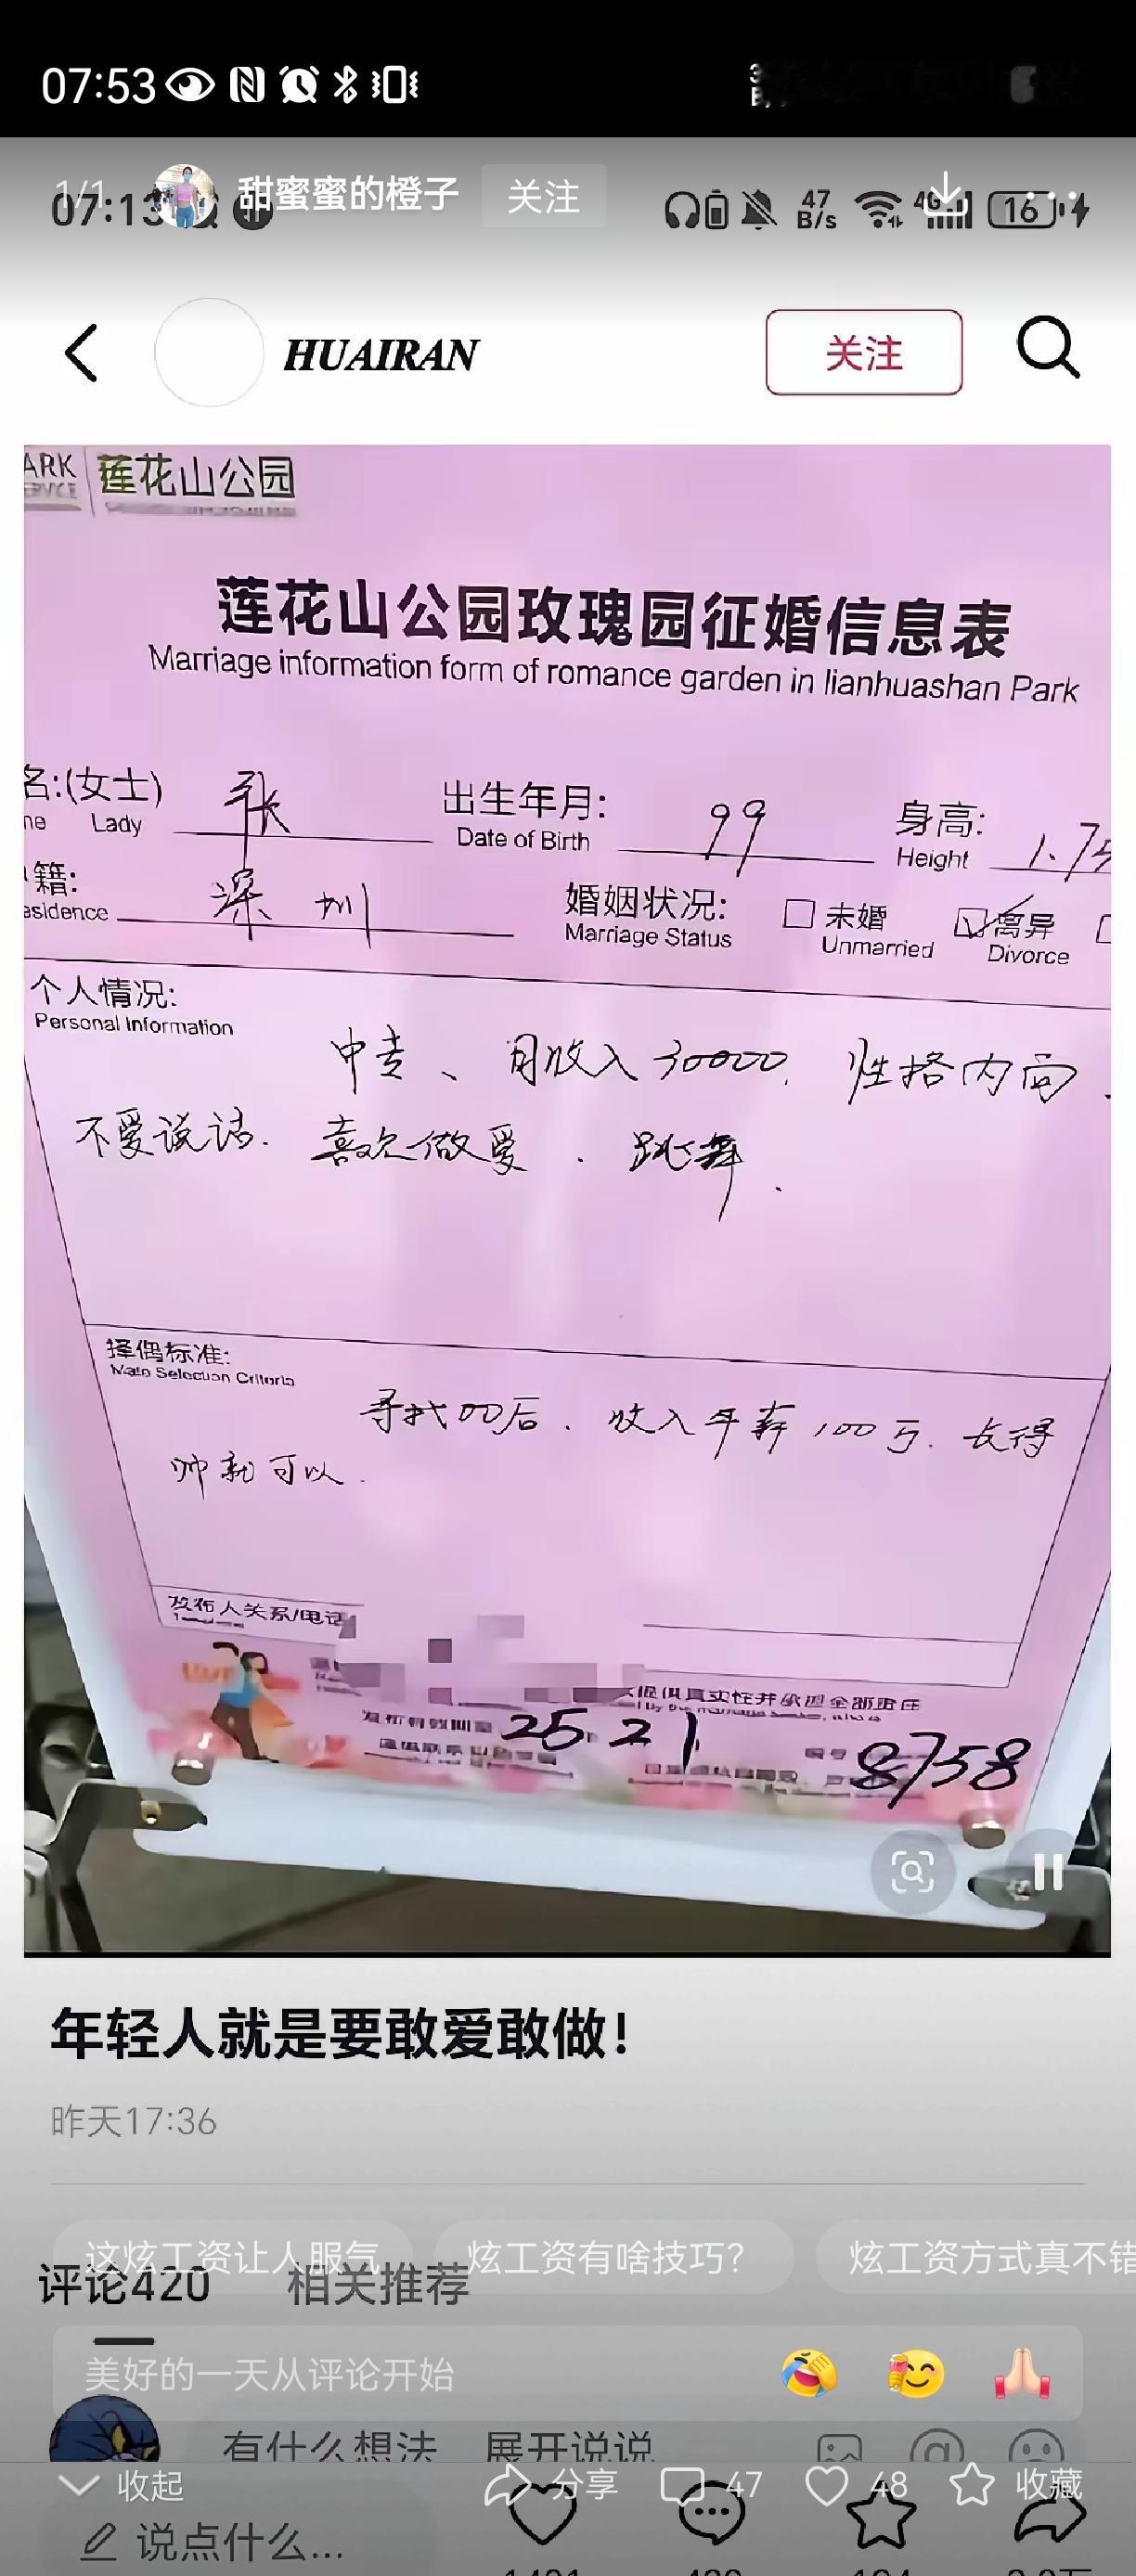 07:53
1/1 甜蜜蜜的橙子 关注
07:13 47 B/s 4G 16
HUAIRAN 关注
ARK 莲花山公园
莲花山公园玫瑰园征婚信息表
Marriage information form of romance garden in lianhuashan Park
名:(女士) 张 出生年月: 99 身高:
Lady Date of Birth Height
籍: 深圳 婚姻状况: 未婚 离异
esidence Marriage Status Unmarried Divorce
个人情况:
Personal Information
中专、月收入30000. 性格内向.
不爱说话. 喜欢做爱. 跳舞.
择偶标准:
Mate Selection Criteria
寻找00后. 收入年薪100万. 长得
帅就可以.
发布人关系/电话
提供真实性并承担全部责任
25. 21
编号 8758
年轻人就是要敢爱敢做!
昨天17:36
这炫工资让人服气 炫工资有啥技巧? 炫工资方式真不错
评论420 相关推荐
美好的一天从评论开始
有什么想法 展开说说
收起 分享 47 48 收藏
说点什么...